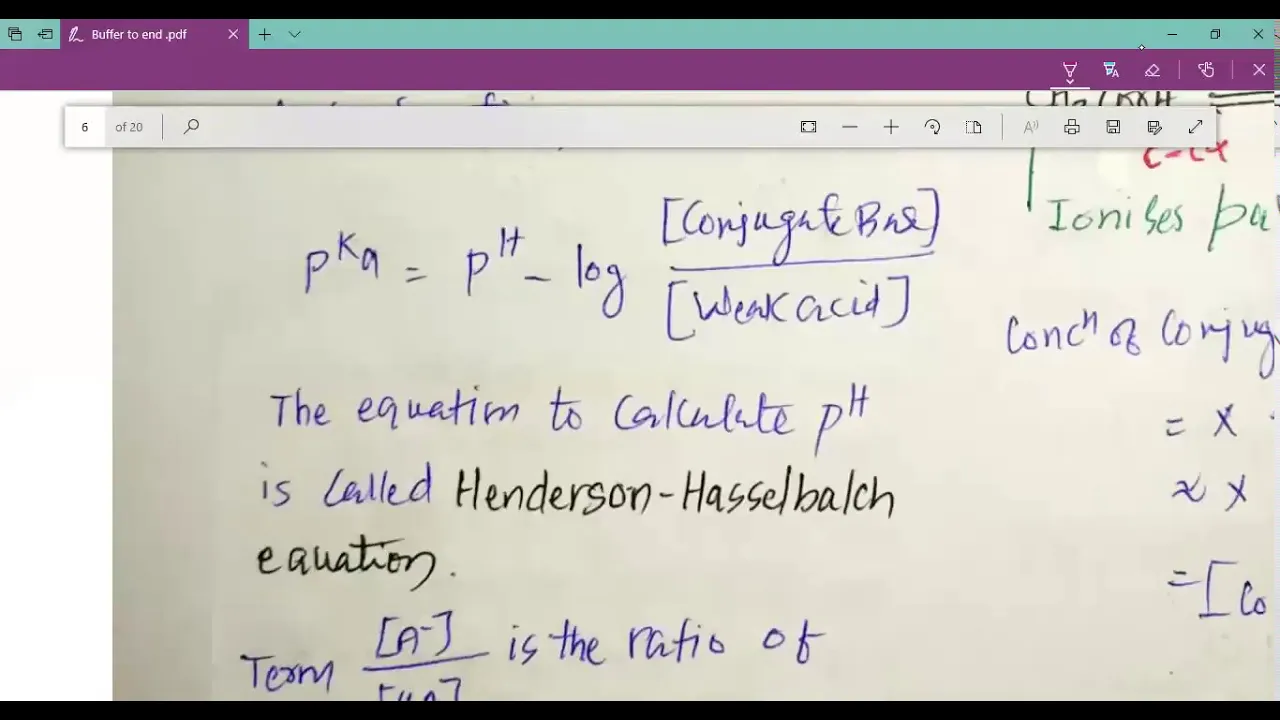 Buffer to end .pdf
6 of 20
CH3COOH
pKa = pH - log [Conjugate Base]
[Weak acid]
The equation to calculate pH
is called Henderson-Hasselbalch
equation.
Term [A-] is the ratio of
[HA]
Ionises pa
Concn of Conjug
= x
≈ x
= [Co